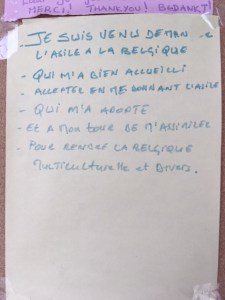 MERCI! THANKYOU! BEDANKT!
- JE SUIS VENU DEMAN
L'ASILE A LA BELGIQUE
- QUI M'A BIEN ACCUEILLI
- ACCEPTER EN ME DONNANT L'ASILE
- QUI M'A ADOPTÉ
- ET A MON TOUR DE M'ASSIMILER
- POUR RENDRE LA BELGIQUE
multiculturelle et Divers.